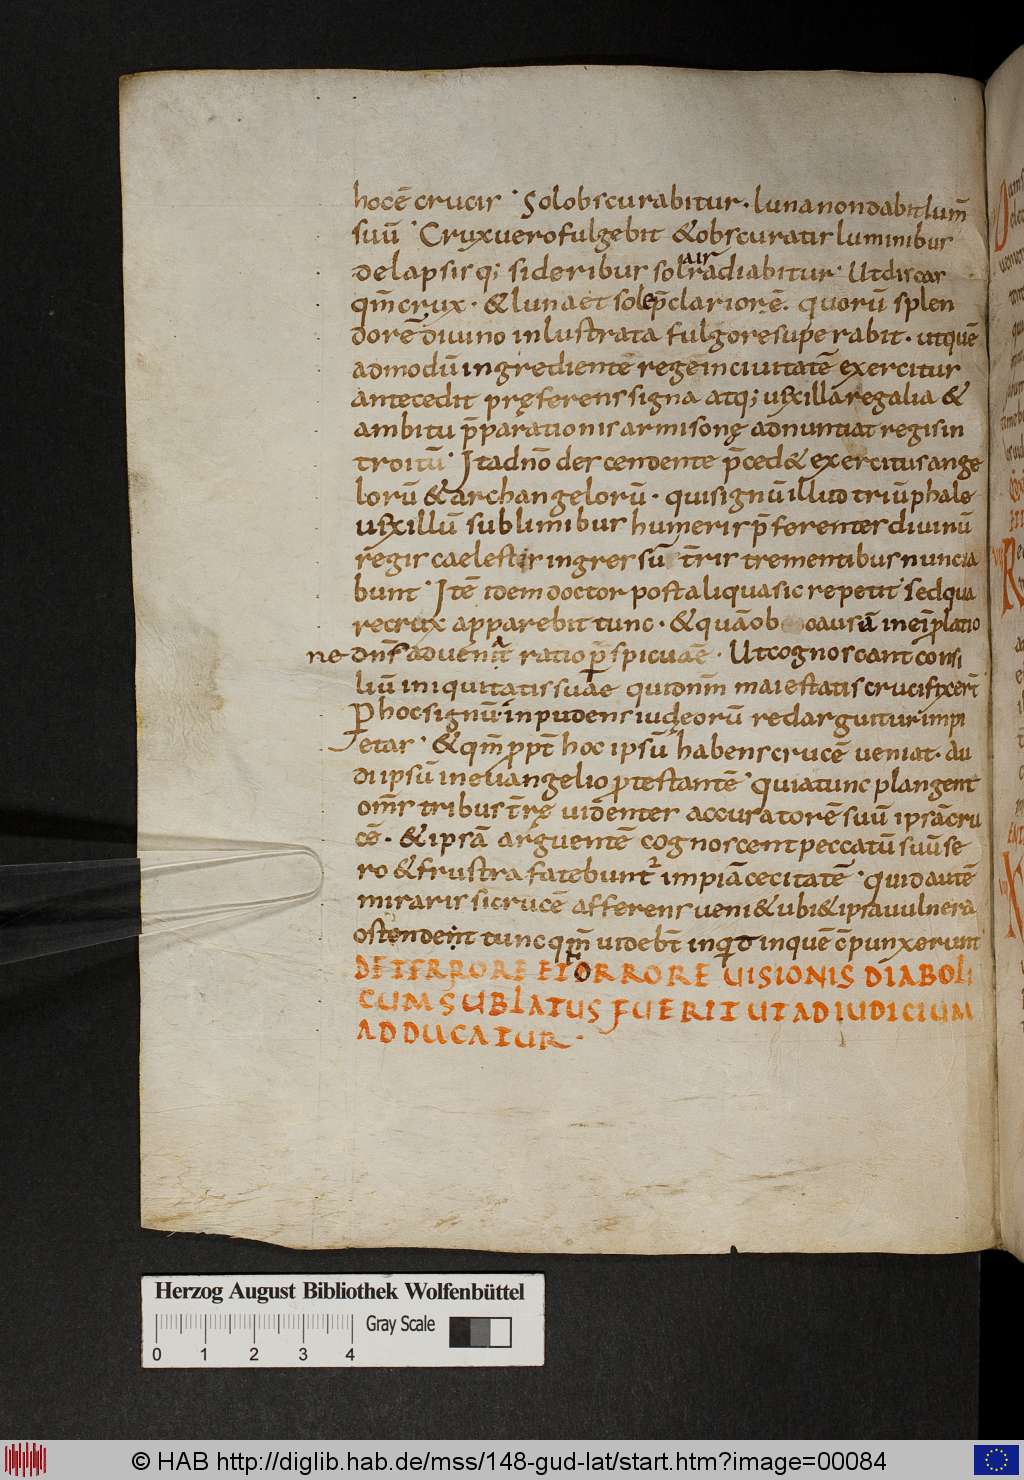 hoc ē crucis · Sol obscurabitur · luna non dabit lum̄
suū · Crux uero fulgebit & obscuratis luminibus
delapsisq; sideribus sola ir radiabitur · Ut discas
qm̄ crux · & luna et sole p̄clarior ē · quorū splen
dorē diuino inlustrata fulgore superabit · ut quē
admodū ingrediente regē in ciuitatē exercitus
antecedit pręferens signa atq; uexilla regalia &
ambitu p̄parationis armisonę adnuntiat regis in
troitū · Ita dn̄o descendente p̄ced& exercitus ange
lorū & archangelorū · qui signū illud triūphale
uexillū sublimibus humeris p̄ferentes diuinū
regis caelestis ingressū t̄ris trementibus nuncia
bunt · Itē idem doctor post aliqua sic repetit · sed qua
re crux apparebit tunc · & quā ob causā in ei p̄latio
ne dn̄s aduenit ratio p̄spicua ē · Ut cognoscant consi
liū iniquitatis suae qui dn̄m maiestatis crucifixer̄
P hoc signū inpudens iudeorū redarguitur impi
etas · & qm̄ ꝓpt̄ hoc ipsū habens crucē ueniat · au
di ipsū in euangelio ꝓtestantē · quia tunc plangent
om̄s tribus t̄rę uidentes accusatorē suū ipsā cru
cē · & ipsā arguentē cognoscent peccatū suū se
ro & frustra fatebunt̄ impiā cecitatē · quid autē
miraris si crucē afferens ueni& ubi & ipsa uulnera
ostendent tunc qm̄ uideb̄t inquid in quē c̄punxerunt
DE TERRORE ET ORRORE UISIONIS DIABOLI
CUM SUBLATUS FUERIT UT AD IUDICIUM
ADDUCATUR ·
Herzog August Bibliothek Wolfenbüttel
Gray Scale
0 1 2 3 4
© HAB http://diglib.hab.de/mss/148-gud-lat/start.htm?image=00084